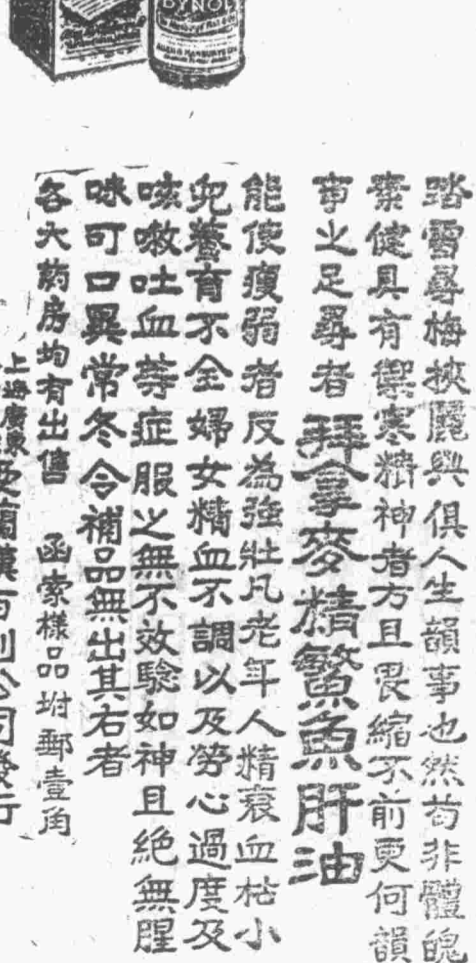 DYNOL
踏雪尋梅挾麗興俱人生韻事也然苟非體魄
素健具有禦寒精神者方且畏縮不前更何韻
事之足尋者 拜拿麥精鰵魚肝油
能使瘦弱者反為強壯凡老年人精衰血枯小
兒養育不全婦女精血不調以及勞心過度及
咳嗽吐血等症服之無不效驗如神且絕無腥
味可口異常冬令補品無出其右者
各大葯房均有出售 函索樣品坿郵壹角
上海廣東 愛蘭漢百利公司發行